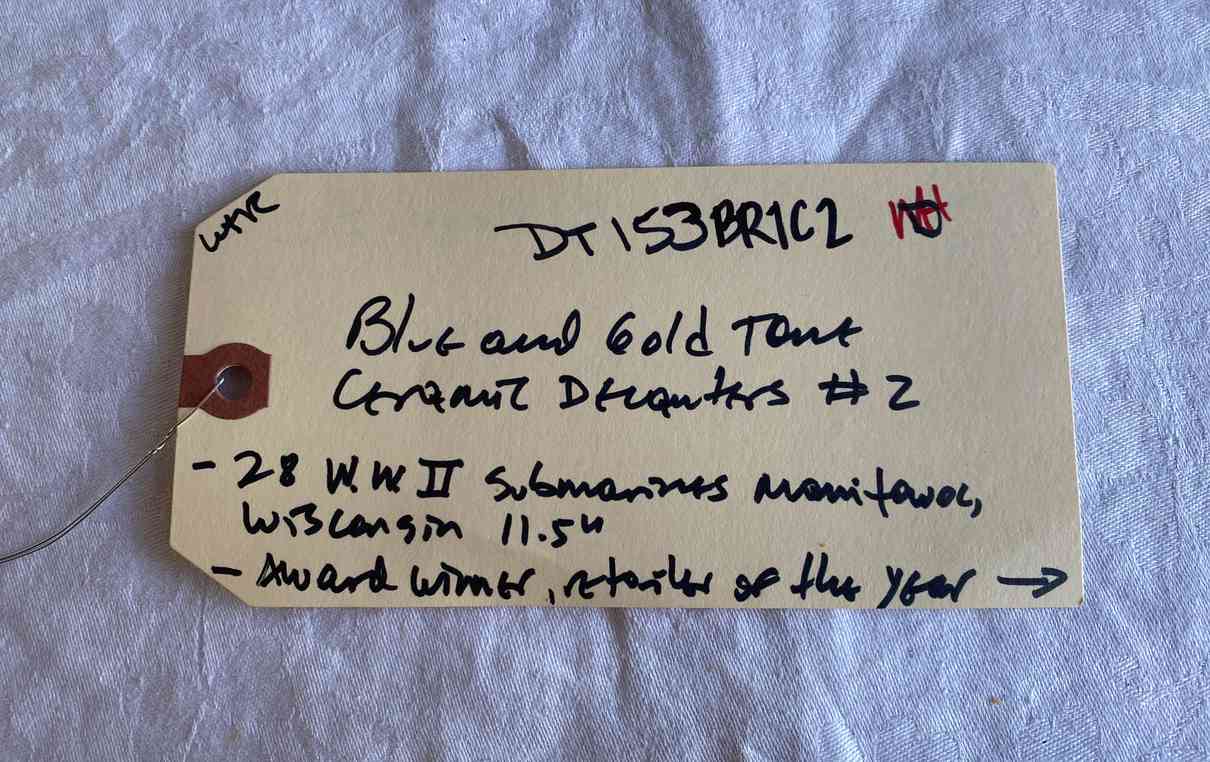 WHR
DT153BR1C2
Blue and Gold Tone
Ceramic Decanters #2
- 28 W.W. II Submarines Manitowoc,
Wisconsin 11.5"
- Award winner, retailer of the year →